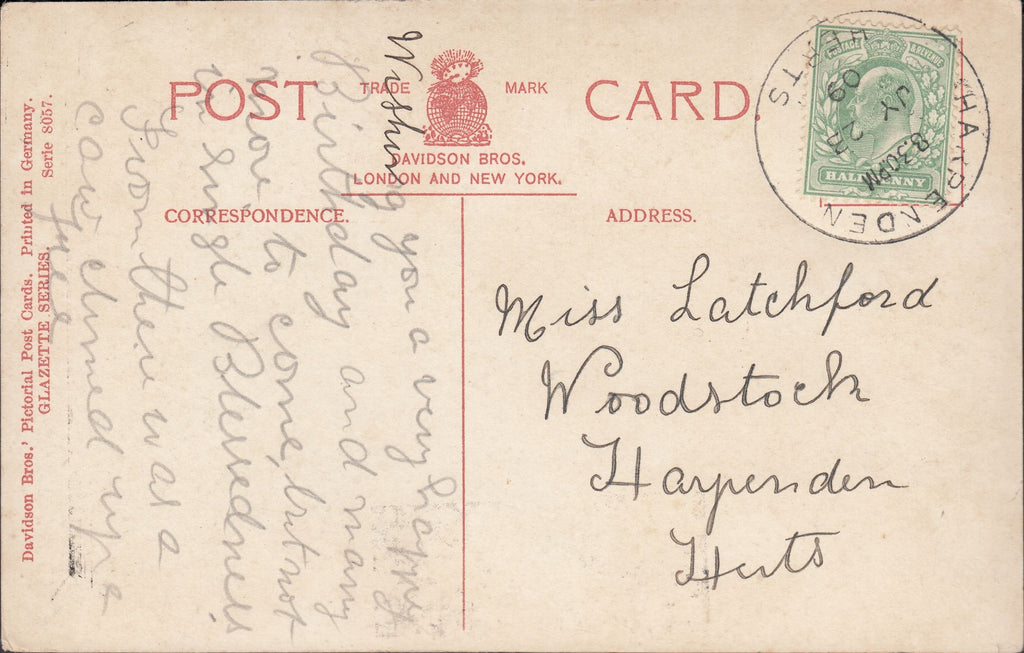 POST CARD.
TRADE MARK
DAVIDSON BROS.
LONDON AND NEW YORK.
CORRESPONDENCE.
ADDRESS.
Wishing you a very happy
Birthday and many
more to come, but not
in Single Blessedness
From there was a
cow climed up a
Davidson Bros.' Pictorial Post Cards. Printed in Germany.
GLAZETTE SERIES. Serie 8057.
Miss Latchford
Woodstock
Harpenden
Herts
POSTAGE & REVENUE
HALFPENNY
HARPENDEN
HERTS
8.30PM
JY 22
09